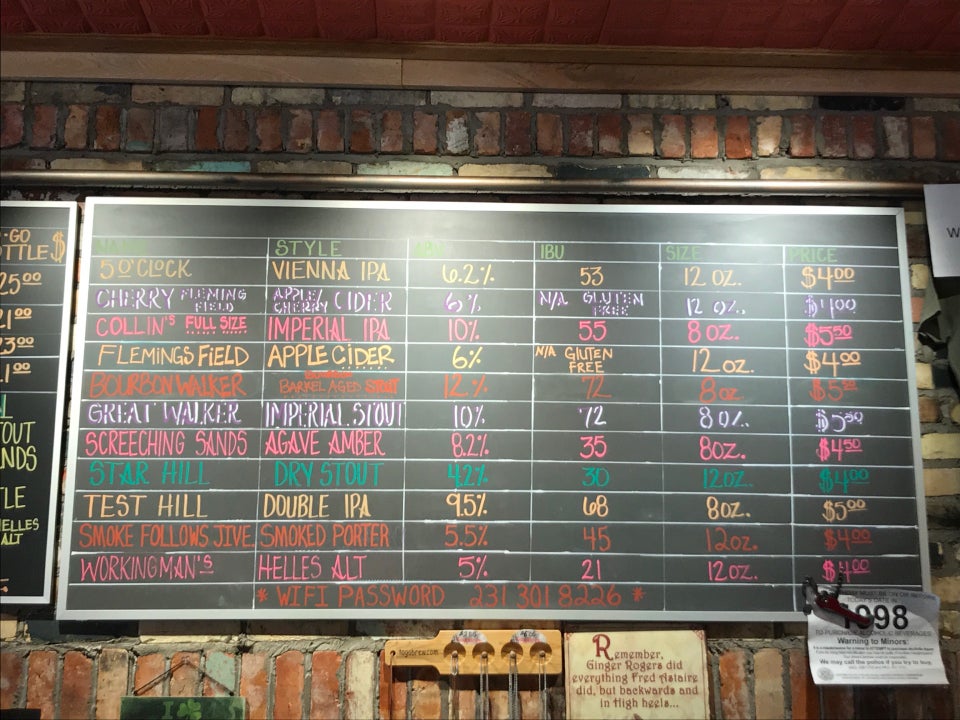 -GO
OTTLE $
25.00
1.00
3.00
1.00
TOUT
NDS
TLE
HELLES
ALT
NAME STYLE ABV IBU SIZE PRICE
5 O'CLOCK VIENNA IPA 6.2% 53 12 OZ. $4.00
CHERRY FLEMING FIELD APPLE/CHERRY CIDER 6% N/A GLUTEN FREE 12 OZ. $4.00
COLLIN'S FULL SIZE IMPERIAL IPA 10% 55 8 OZ. $5.50
FLEMINGS FIELD APPLE CIDER 6% N/A GLUTEN FREE 12 OZ. $4.00
BOURBON WALKER BARREL AGED STOUT 12% 72 8 OZ. $5.50
GREAT WALKER IMPERIAL STOUT 10% 72 8 OZ. $5.50
SCREECHING SANDS AGAVE AMBER 8.2% 35 8OZ. $4.50
STAR HILL DRY STOUT 4.2% 30 12OZ. $4.00
TEST HILL DOUBLE IPA 9.5% 68 8OZ. $5.00
SMOKE FOLLOWS JIVE SMOKED PORTER 5.5% 45 12OZ. $4.00
WORKINGMAN'S HELLES ALT 5% 21 12OZ. $4.00
* WIFI PASSWORD 231 301 8226 *
W
TODAY'S DATE IN
1998
TO PURCHASE ALCOHOLIC BEVERAGES
Warning to Minors:
We may call the police if you try to buy.
Remember,
Ginger Rogers did
everything Fred Astaire
did, but backwards and
in High heels...
I